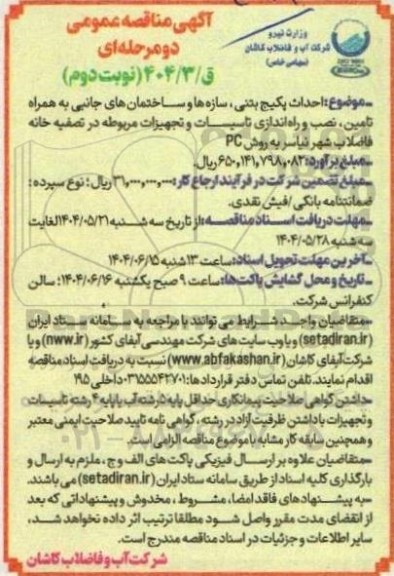 آگهی مناقصه عمومی
دومرحله‌ای
ق/۴۰۴/۳ (نوبت دوم)
وزارت نیرو
شرکت آب و فاضلاب کاشان
(سهامی خاص)
ـ موضوع: احداث پکیج بتنی، سازه‌ها و ساختمان های جانبی به همراه
تامین، نصب و راه‌اندازی تاسیسات و تجهیزات مربوطه در تصفیه خانه
فاضلاب شهر نیاسر به روش PC
ـ مبلغ برآورد: ۶۵۰,۱۴۱,۷۹۸,۰۸۲ ریال.
ـ مبلغ تضمین شرکت در فرآیند ارجاع کار: ۳۱,۰۰۰,۰۰۰,۰۰۰ ریال؛ نوع سپرده:
ضمانتنامه بانکی/فیش نقدی.
ـ مهلت دریافت اسناد مناقصه: از تاریخ سه شنبه ۱۴۰۴/۰۵/۲۱ لغایت
سه شنبه ۱۴۰۴/۰۵/۲۸
ـ آخرین مهلت تحویل اسناد: ساعت ۱۳ شنبه ۱۴۰۴/۰۶/۱۵
ـ تاریخ و محل گشایش پاکت‌ها: ساعت ۹ صبح یکشنبه ۱۴۰۴/۰۶/۱۶؛ سالن
کنفرانس شرکت.
ـ متقاضیان واجد شرایط می توانند با مراجعه به سامانه ستاد ایران
(setadiran.ir) و یا وب سایت های شرکت مهندسی آبفای کشور (nww.ir) و یا
شرکت آبفای کاشان (www.abfakashan.ir) نسبت به دریافت اسناد مناقصه
اقدام نمایند. تلفن تماس دفتر قراردادها: ۰۳۱۵۵۵۴۲۷۰۱ داخلی ۱۹۵
ـ داشتن گواهی صلاحیت پیمانکاری حداقل پایه ۵ رشته آب یا پایه ۴ رشته تاسیسات
و تجهیزات با داشتن ظرفیت آزاد در رشته، گواهی نامه تایید صلاحیت ایمنی معتبر
و همچنین سابقه کار مشابه با موضوع مناقصه الزامی است.
ـ متقاضیان علاوه بر ارسال فیزیکی پاکت های الف و ج، ملزم به ارسال و
بارگذاری کلیه اسناد از طریق سامانه ستاد ایران (setadiran.ir) می باشند.
ـ به پیشنهادهای فاقد امضا، مشروط، مخدوش و پیشنهاداتی که بعد
از انقضای مدت مقرر واصل شود مطلقا ترتیب اثر داده نخواهد شد،
سایر اطلاعات و جزئیات در اسناد مناقصه مندرج است.
شرکت آب و فاضلاب کاشان